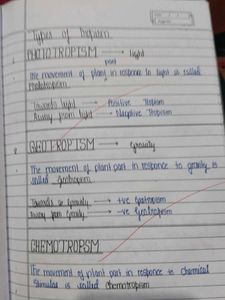 Types of Tropism
PHOTOTROPISM → Light
part
The movement of plant in response to light is called
Phototropism
Towards light → Positive Tropism
Away from light → Negative Tropism
GEOTROPISM → Gravity
The movement of plant part in response to gravity is
called Geotropism
Towards Gravity → +ve Geotropism
Away from Gravity → -ve Geotropism
CHEMOTROPSM
The movement of plant part in response to chemical
Stimulus is called chemotropism